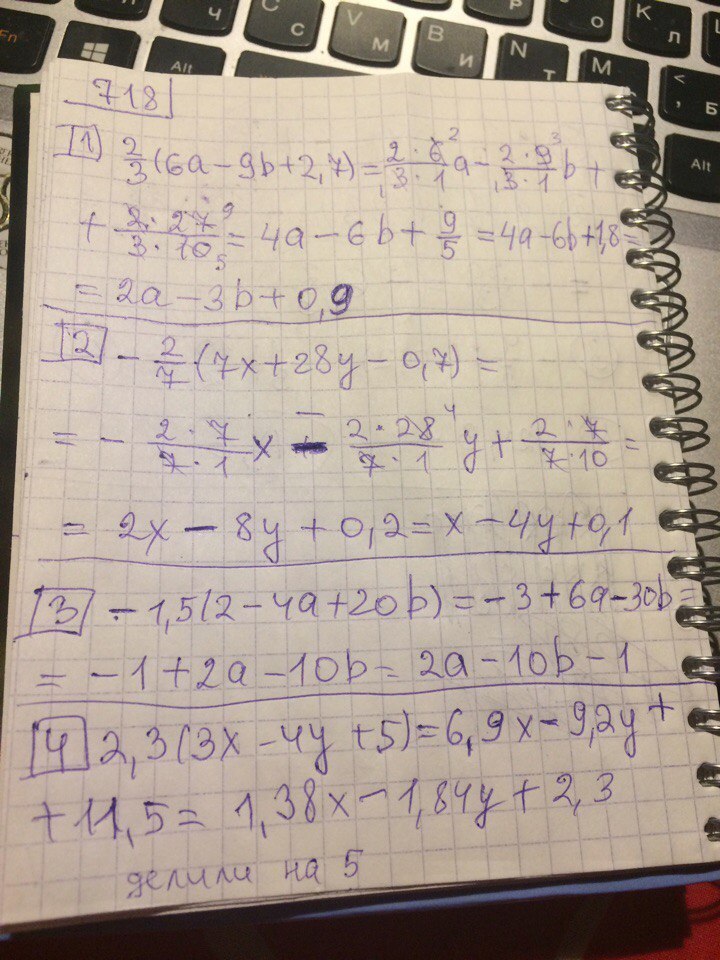 Fn
Alt
Ч
C
С
V
М
B
И
N
Т
M
К
Л
О
<
,
Б
Alt
718
1) 2/3(6a-9b+2,7)=2·6²/3·1 a-2·9³/3·1 b+
+2·27⁹/3·10₅=4a-6b+9/5=4a-6b+1,8=
=2a-3b+0,9
2 -2/7(7x+28y-0,7)=
=-2·7/7·1 x-2·28⁴/7·1 y+2·7/7·10=
=2x-8y+0,2=x-4y+0,1
3 -1,5(2-4a+20b)=-3+6a-30b=
=-1+2a-10b=2a-10b-1
4 2,3(3x-4y+5)=6,9x-9,2y+
+11,5=1,38x-1,84y+2,3
делили на 5